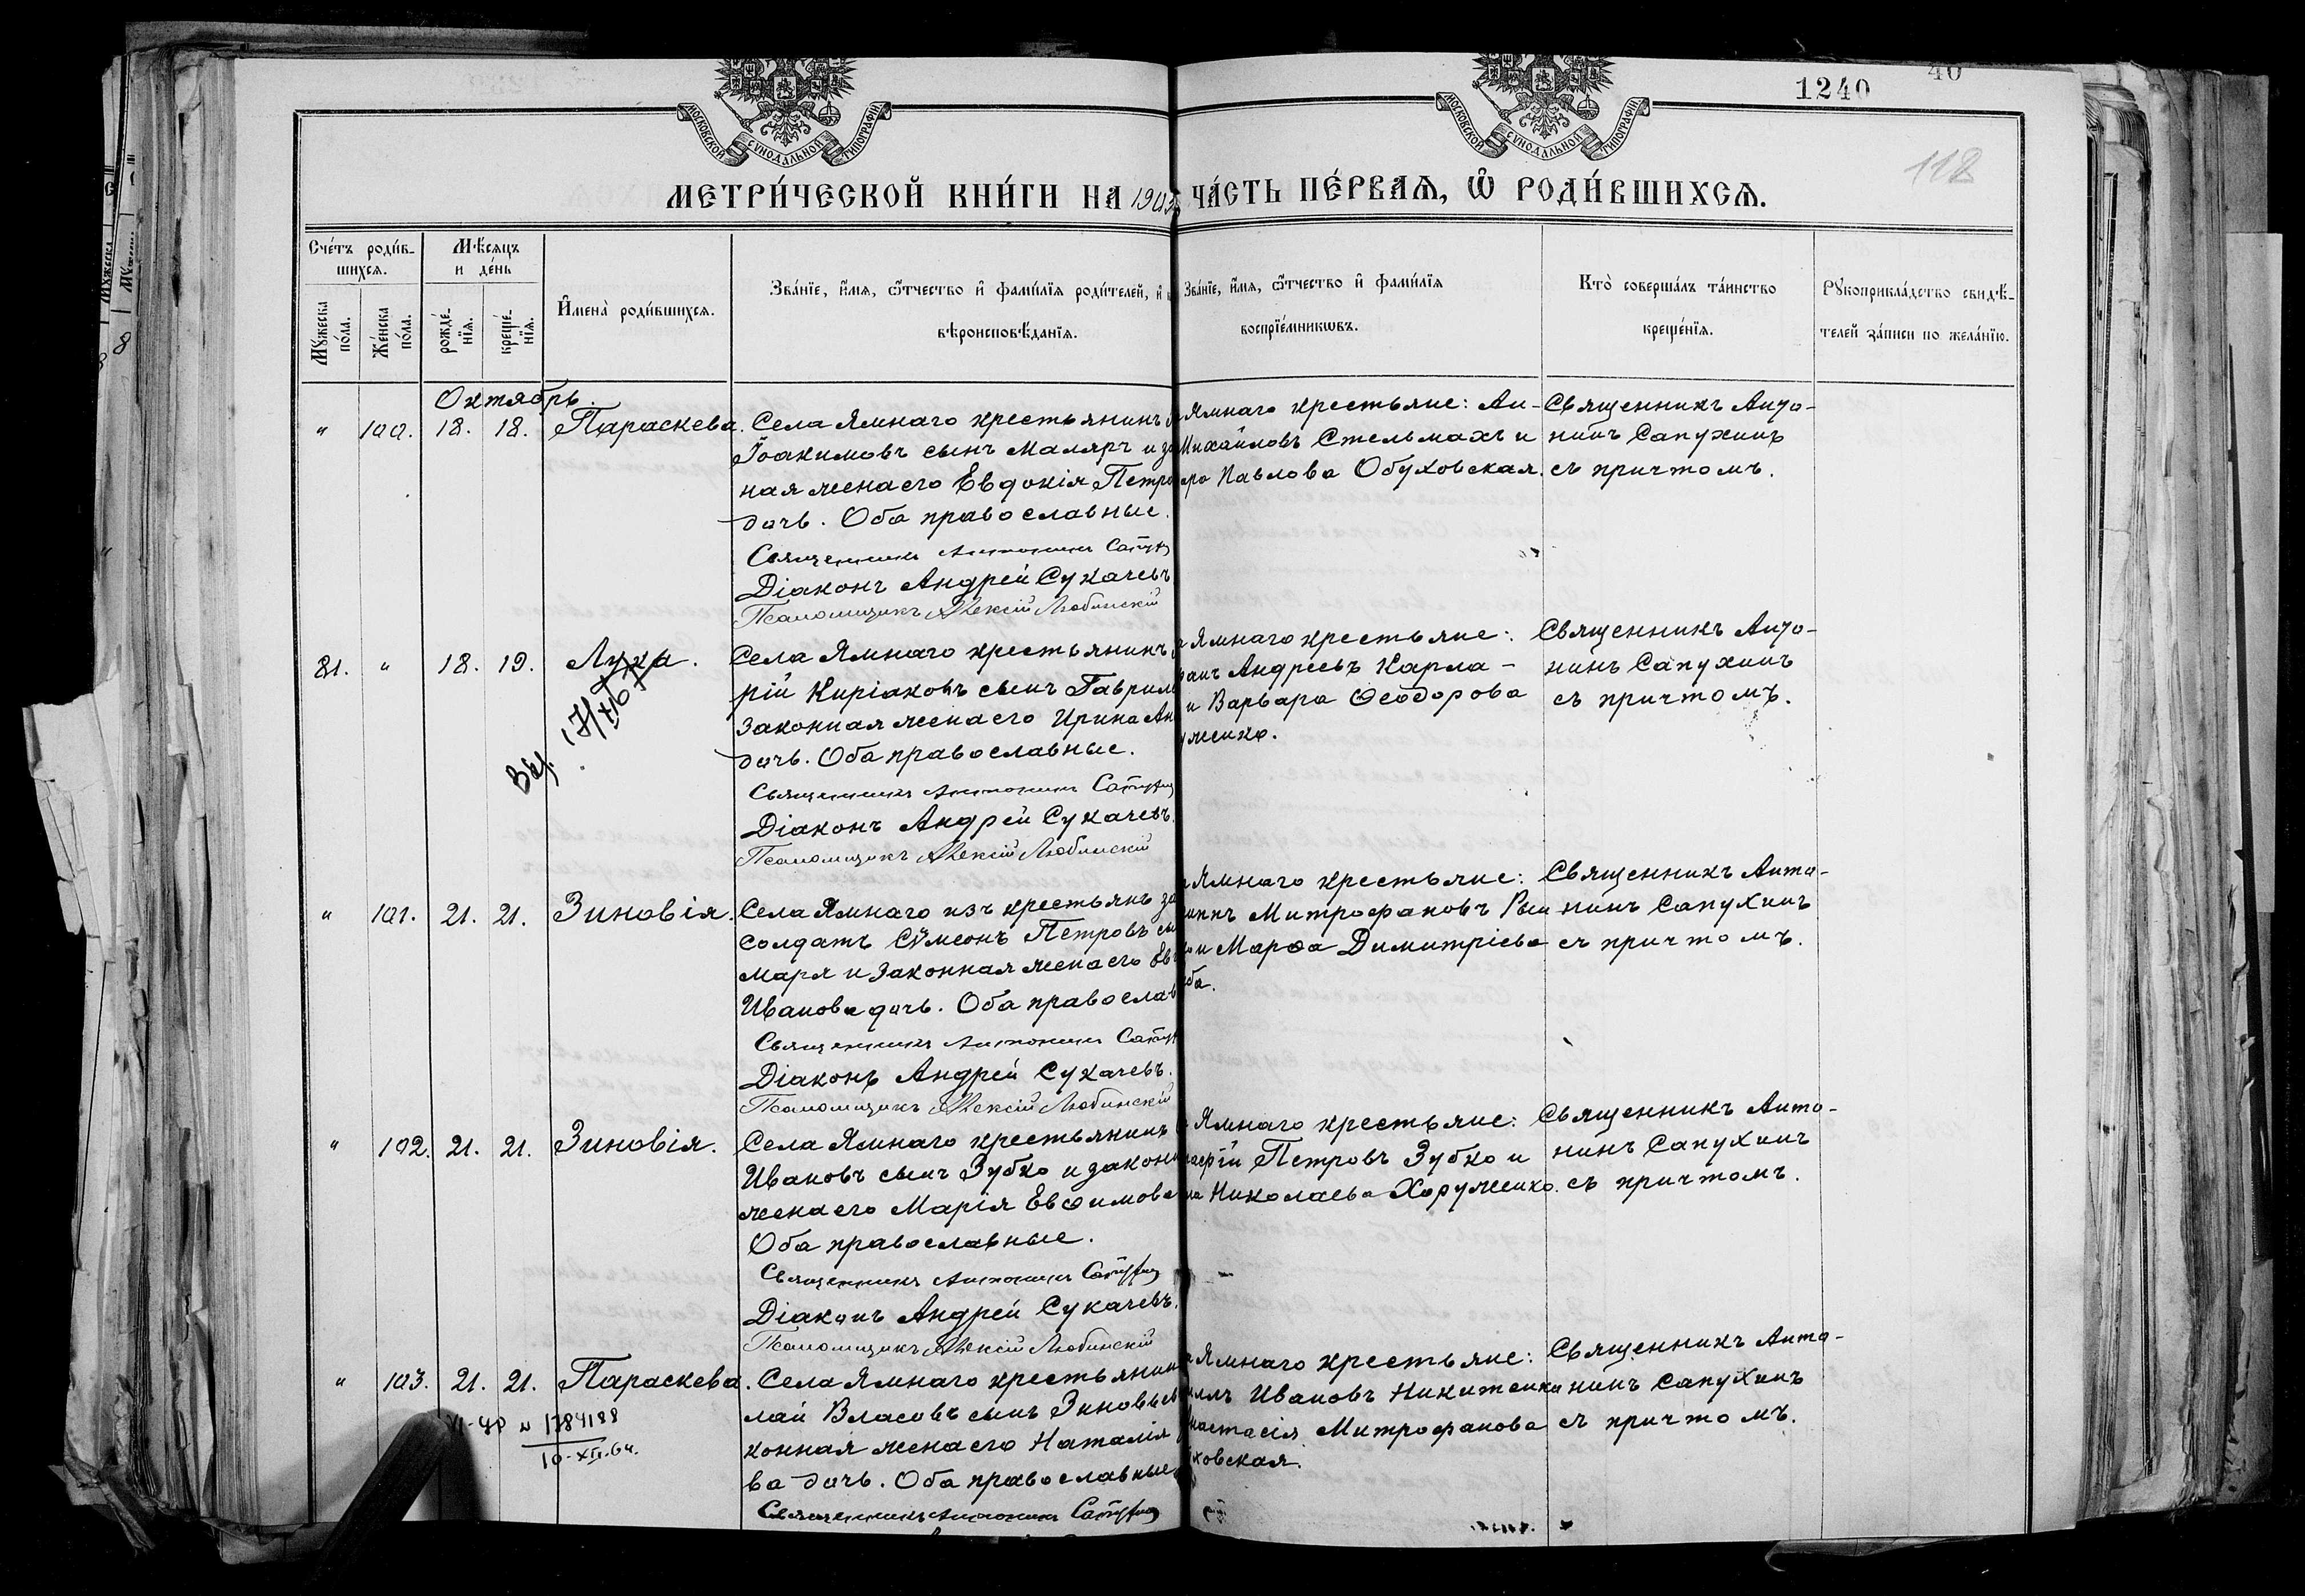 1240
40
118
МОСКОВСКОЙ СУНОДАЛЬНОЙ ТИПОГРАФІИ
МОСКОВСКОЙ СУНОДАЛЬНОЙ ТИПОГРАФІИ
МЕТРИ́ЧЕСКОЙ КНИ́ГИ НА 1903 ЧА́СТЬ ПЕ́РВАѦ, Ѽ РОДИ́ВШИХСѦ.
Сче́тъ роди́в-
шихсѧ.
Мꙋ́жеска по́ла.
Же́нска по́ла.
Мѣ́сѧцъ
и де́нь
рожде́-
нїѧ.
креще́-
нїѧ.
И҆мена̀ роди́вшихсѧ.
Зва́нїе, и҆́мѧ, ѻ҆́тчество и҆ фами́лїѧ роди́телей, и҆
вѣроисповѣ́данїѧ.
Зва́нїе, и҆́мѧ, ѻ҆́тчество и҆ фами́лїѧ
воспрїе́мникѡвъ.
Кто̀ соверша́лъ та́инство
креще́нїѧ.
Рꙋкоприкла́дство свидѣ́-
телей за́писи по жела́нїю.
Октябрь.
" 100. 18. 18. Параскева.
Села Ямнаго крестьянинъ
Іоакимовъ сынъ Маляръ и за
ная жена его Евдокія Петро
дочь. Оба православные.
Священникъ Антонинъ Сапух
Діаконъ Андрей Сукачевъ
Псаломщикъ Алексій Любинскій
Ямнаго крестьяне: Ан-
Михайловъ Стельмахъ и
Павлова Обуховская.
Священникъ Анто-
нинъ Сапухинъ
съ причтомъ.
81. " 18. 19. Лука.
Выд. 17/XI 6
Села Ямнаго крестьянинъ
рій Киріаковъ сынъ Гаврил
законная жена его Ирина Ан
дочь. Оба православные.
Священникъ Антонинъ Сапухин
Діаконъ Андрей Сукачевъ.
Псаломщикъ Алексій Любинскій
Ямнаго крестьяне:
Андреевъ Карпа-
и Варвара Ѳеодорова
уженко.
Священникъ Анто-
нинъ Сапухинъ
съ причтомъ.
" 101. 21. 21. Зиновія.
Села Ямнаго изъ крестьянъ за
солдатъ Сѵмеонъ Петровъ сы
маря и законная жена его Ев
Иванова дочь. Оба православ
Священникъ Антонинъ Сапух
Діаконъ Андрей Сукачевъ.
Псаломщикъ Алексій Любинскій
Ямнаго крестьяне:
Митрофановъ Рын
и Марѳа Димитріева
ба.
Священникъ Анто-
нинъ Сапухинъ
съ причтомъ.
" 102. 21. 21. Зиновія.
Села Ямнаго крестьянинъ
Ивановъ сынъ Зубко и законн
жена его Марія Евѳимова
Оба православные.
Священникъ Антонинъ Сапухин
Діаконъ Андрей Сукачевъ.
Псаломщикъ Алексій Любинскій
Ямнаго крестьяне:
Петровъ Зубко и
на Николаева Хоруженко.
Священникъ Анто-
нинъ Сапухинъ
съ причтомъ.
" 103. 21. 21. Параскева.
1384188
10-XII-64.
Села Ямнаго крестьянин
лай Власовъ сынъ Зиновье
конная жена его Наталія
ва дочь. Оба православные
Священникъ Антонинъ Сапухин
Ямнаго крестьяне:
Ивановъ Никитенко
настасія Митрофанова
ховская.
Священникъ Анто-
нинъ Сапухинъ
съ причтомъ.